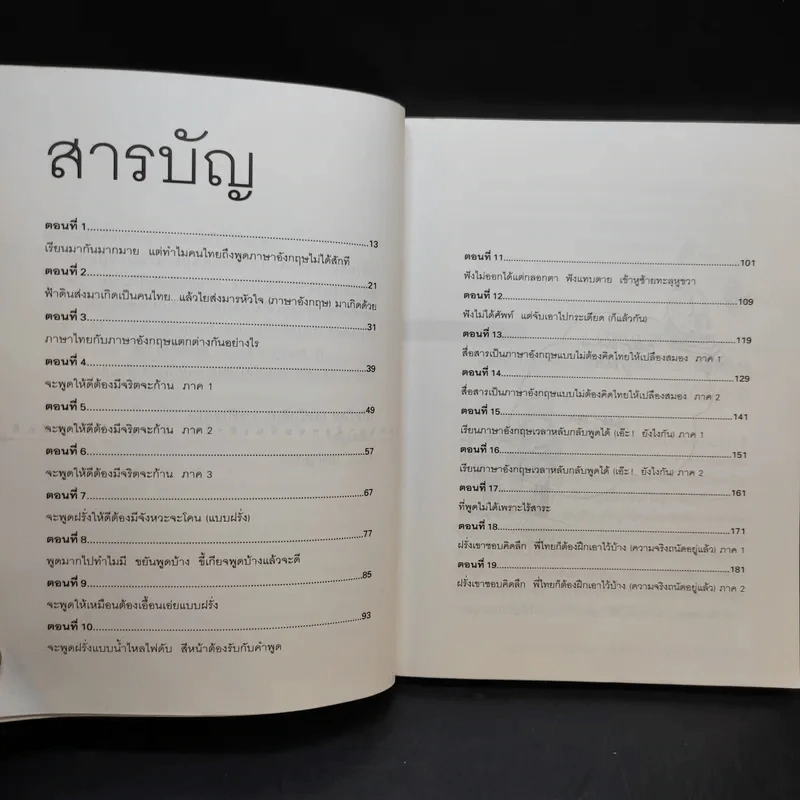 สารบัญ
ตอนที่ 1........................................................13
เรียนมากันมากมาย แต่ทำไมคนไทยถึงพูดภาษาอังกฤษไม่ได้สักที
ตอนที่ 2........................................................21
ฟ้าดินส่งมาเกิดเป็นคนไทย...แล้วไยส่งมารหัวใจ (ภาษาอังกฤษ) มาเกิดด้วย
ตอนที่ 3........................................................31
ภาษาไทยกับภาษาอังกฤษแตกต่างกันอย่างไร
ตอนที่ 4........................................................39
จะพูดให้ดีต้องมีจริตจะก้าน ภาค 1
ตอนที่ 5........................................................49
จะพูดให้ดีต้องมีจริตจะก้าน ภาค 2
ตอนที่ 6........................................................57
จะพูดให้ดีต้องมีจริตจะก้าน ภาค 3
ตอนที่ 7........................................................67
จะพูดฝรั่งให้ดีต้องมีจังหวะจะโคน (แบบฝรั่ง)
ตอนที่ 8........................................................77
พูดมากไปทำไมมี ขยันพูดบ้าง ขี้เกียจพูดบ้างแล้วจะดี
ตอนที่ 9........................................................85
จะพูดให้เหมือนต้องเอื้อนเอ่ยแบบฝรั่ง
ตอนที่ 10........................................................93
จะพูดฝรั่งแบบน้ำไหลไฟดับ สีหน้าต้องรับกับคำพูด
ตอนที่ 11........................................................101
ฟังไม่ออกได้แต่กลอกตา ฟังแทบตาย เข้าหูซ้ายทะลุหูขวา
ตอนที่ 12........................................................109
ฟังไม่ได้ศัพท์ แต่จับเอาไปกระเดียด (ก็แล้วกัน)
ตอนที่ 13........................................................119
สื่อสารเป็นภาษาอังกฤษแบบไม่ต้องคิดไทยให้เปลืองสมอง ภาค 1
ตอนที่ 14........................................................129
สื่อสารเป็นภาษาอังกฤษแบบไม่ต้องคิดไทยให้เปลืองสมอง ภาค 2
ตอนที่ 15........................................................141
เรียนภาษาอังกฤษเวลาหลับกลับพูดได้ (เอ๊ะ! ยังไงกัน) ภาค 1
ตอนที่ 16........................................................151
เรียนภาษาอังกฤษเวลาหลับกลับพูดได้ (เอ๊ะ! ยังไงกัน) ภาค 2
ตอนที่ 17........................................................161
ที่พูดไม่ได้เพราะไร้สาระ
ตอนที่ 18........................................................171
ฝรั่งเขาชอบคิดลึก พี่ไทยก็ต้องฝึกเอาไว้บ้าง (ความจริงถนัดอยู่แล้ว) ภาค 1
ตอนที่ 19........................................................181
ฝรั่งเขาชอบคิดลึก พี่ไทยก็ต้องฝึกเอาไว้บ้าง (ความจริงถนัดอยู่แล้ว) ภาค 2